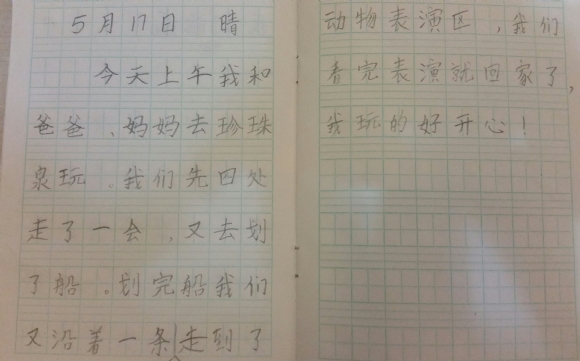 5月17日 晴
今天上午我和
爸爸、妈妈去珍珠
泉玩。我们先四处
走了一会,又去划
了船。划完船我们
又沿着一条走到了
动物表演区,我们
看完表演就回家了,
我玩的好开心!